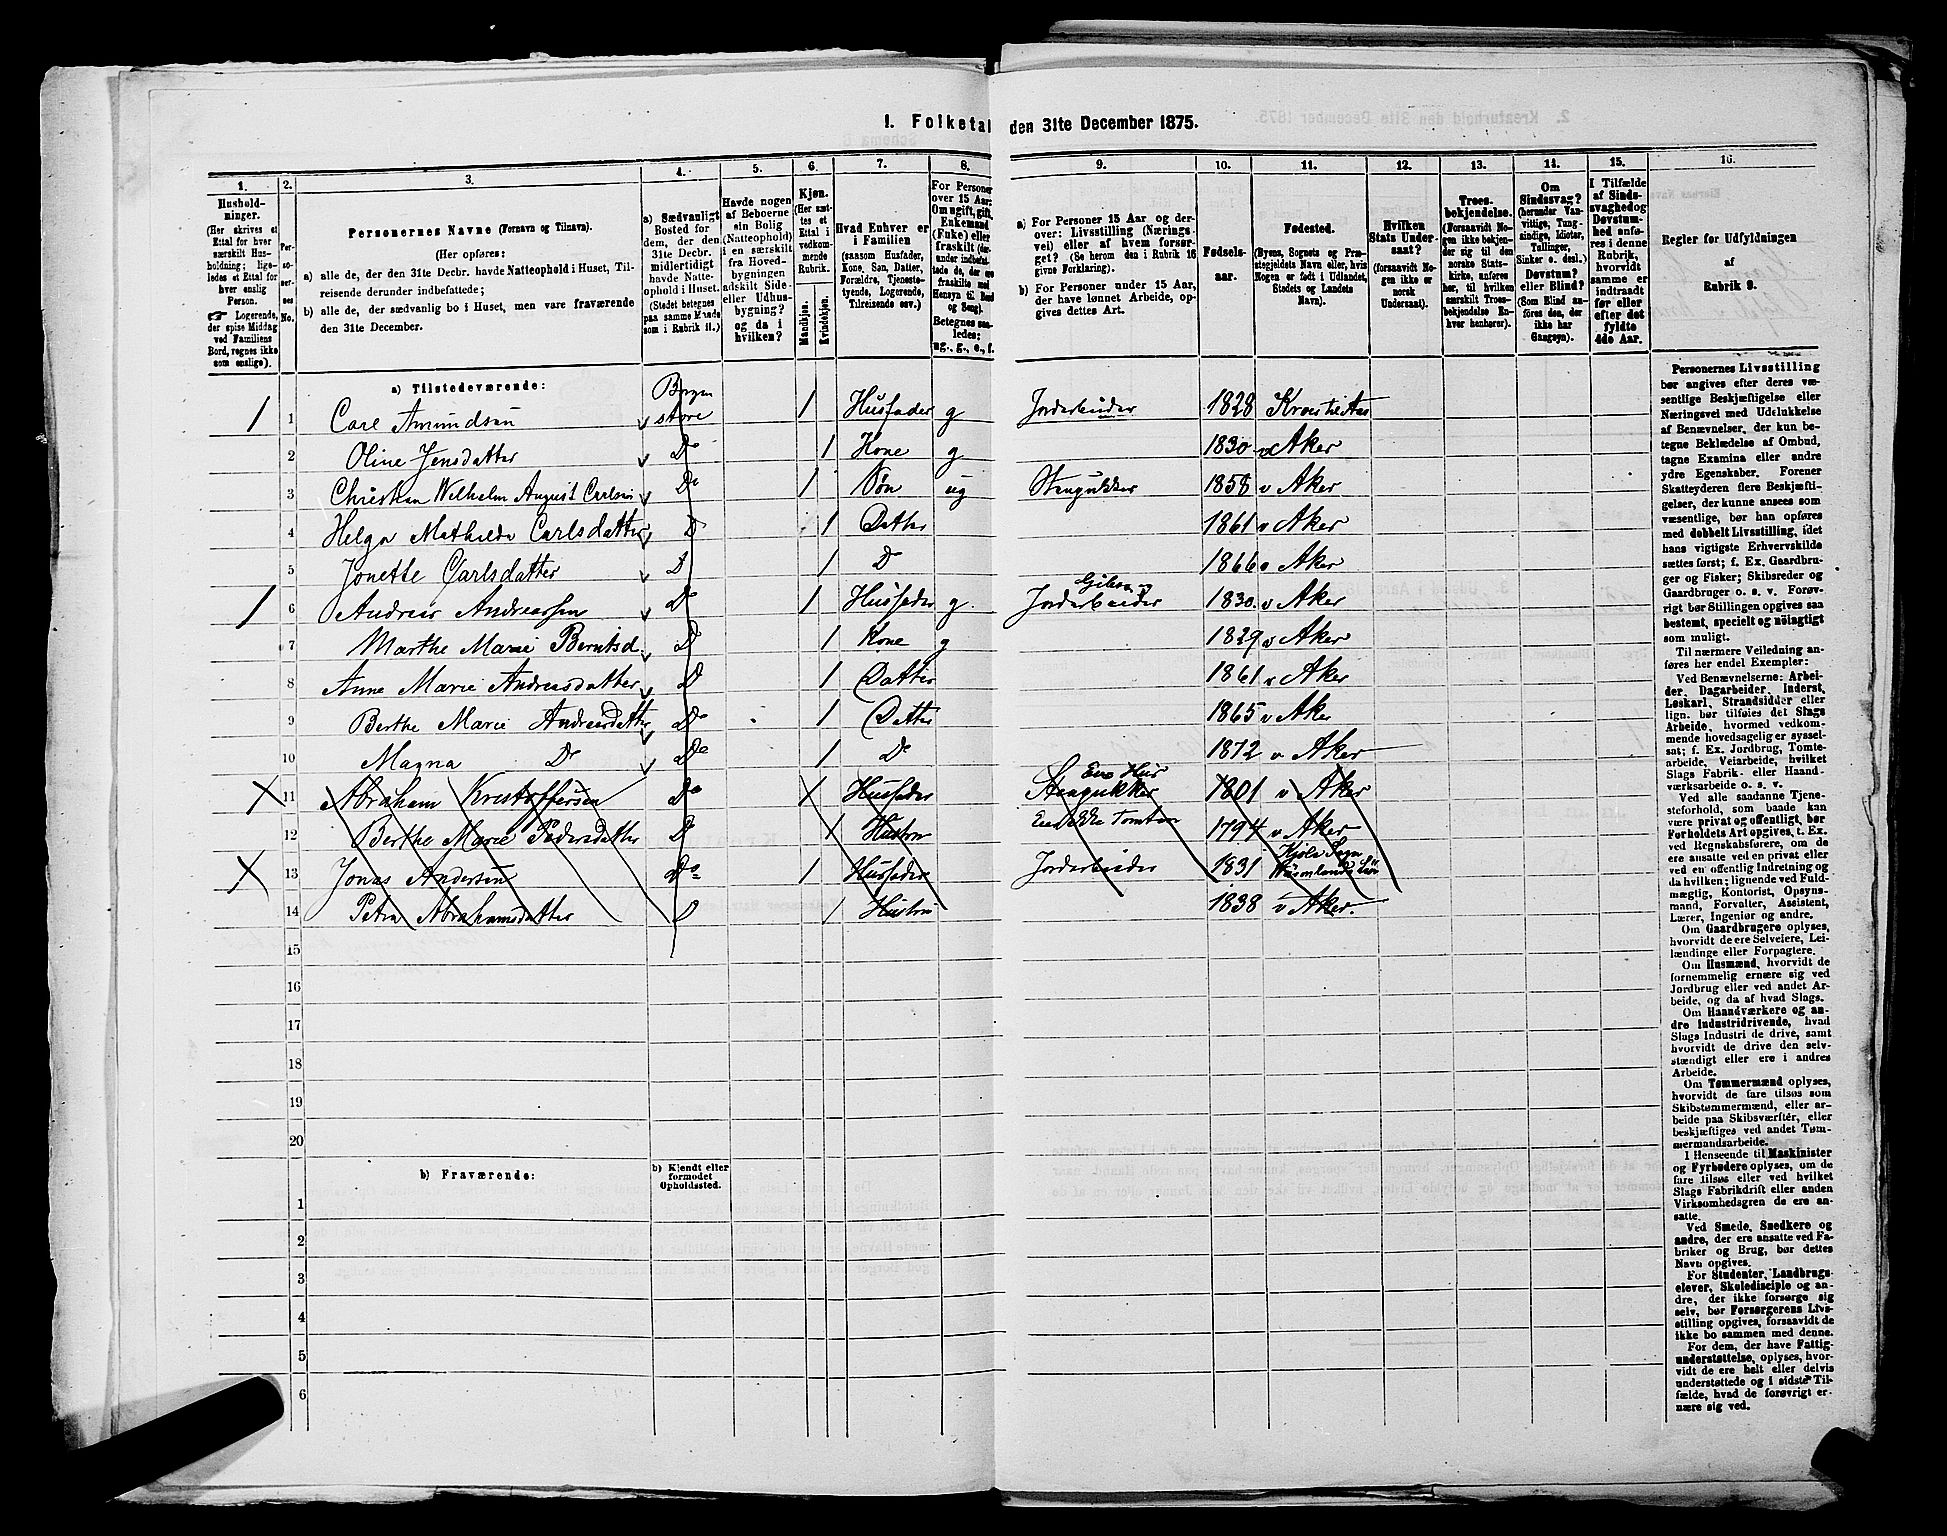 1. Folketal den 31te December 1875.
1. 2. 3. 4. 5. 6. 7. 8. 9. 10. 11. 12. 13. 14. 15. 16.
Husholdninger.
(Her skrives et Ettal for hver særskilt Husholdning; ligeledes et Ettal for hver enslig Person.
☛ Logerende, der spise Middag ved Familiens Bord, regnes ikke som enslige).
Personernes No.
Personernes Navne (Fornavn og Tilnavn).
(Her opføres:
a) alle de, der den 31te Decbr. havde Natteophold i Huset, Tilreisende derunder indbefattede;
b) alle de, der sædvanlig bo i Huset, men vare fraværende den 31te December.
a) Sædvanligt Bosted for dem, der den 31te Decbr. midlertidigt havde Natteophold i Huset. (Stedet betegnes paa samme Maade som i Rubrik 11.)
Havde nogen af Beboerne sin Bolig (Natteophold) i en særskilt fra Hovedbygningen adskilt Side- eller Udhusbygning? og da i hvilken?
Kjøn. (Her sættes et Ettal i vedkommende Rubrik.
Mandkjøn. Kvindekjøn.
Hvad Enhver er i Familien
(saasom Husfader, Kone, Søn, Datter, Forældre, Tjenestetyende, Logerende, Tilreisende osv.)
For Personer over 15 Aar: Om ugift, gift, Enkemand (Enke) eller fraskilt
Betegnes saaledes: ug., g., e., f.
a) For Personer 15 Aar og derover: Livsstilling (Næringsvei) eller af hvem forsørget? (Se herom den i Rubrik 16 givne Forklaring).
b) For Personer under 15 Aar, der have lønnet Arbeide, opgives dettes Art.
Fødselsaar.
Fødested.
(Byens, Sognets og Præstegjeldets Navn eller, hvis Nogen er født i Udlandet, Stedets og Landets Navn).
Hvilken Stats Undersaat?
(forsaavidt Nogen ikke er norsk Undersaat).
Troesbekjendelse.
(Forsaavidt Nogen ikke bekjender sig til den norske Statskirke, anføres her, til hvilken særskilt Troesbekjendelse Enhver henhører).
Om Sindssvag? (herunder Vanvittige, Tungsindige, Idioter, Tullinger, Sinker o. desl.)
Døvstum? eller Blind?
(Som Blind anføres den, der ikke har Gangsyn).
I Tilfælde af Sindssvaghed og Døvstumhed anføres i denne Rubrik, hvorvidt samme er indtraadt før eller efter det fyldte 4de Aar.
Regler for Udfyldningen af Rubrik 9.
a) Tilstedeværende:
1 1 Carl Amundsen Bergenstore 1 Husfader g Jordarbeider 1828
2 Oline Jensdatter Do 1 Kone g 1830 Aker
3 Christian Wilhelm August Carlsen Do 1 Søn ug 1858 Aker
4 Helga Mathilde Carlsdatter D 1 Datter 1861 Aker
5 Jonette Carlsdatter D 1 D 1866 Aker
1 6 Andreas Andreassen Do 1 Husfader g. Jordarbeider 1830 Aker
7 Marthe Marie Berntsd. D 1 Kone g 1829 Aker
8 Anne Marie Andreasdatter D 1 Datter 1861 Aker
9 Berthe Marie Andreasdatter Do 1 Datter 1865 Aker
10 Magna Do Do 1 Do 1872 Aker
11 Abraham Kristoffersen Do 1 Husfader 1801 Aker
12 Berthe Marie Pedersdatter D 1 Hustru 1794 Aker
13 Jonas Andersen Do 1 Husfader Jordarbeider 1831
14 Petra Abrahamsdatter D 1 Hustru 1838 Aker.
15
16
17
18
19
20
b) Fraværende:
b) Kjendt eller formodet Opholdssted.
1
2
3
4
5
6
Personernes Livsstilling
bør angives efter deres væ-
sentlige Beskjæftigelse eller
Næringsvei med Udelukkelse
af Benævnelser, der kun be-
tegne Beklædelse af Ombud,
tagne Examina eller andre
ydre Egenskaber. Forener
Skatteyderen flere Beskjæfti-
gelser, der kunne ansees som
væsentlige, bør han opføres
med dobbelt Livsstilling, idet
hans vigtigste Erhvervskilde
sættes først; f. Ex. Gaardbru-
ger og Fisker; Skibsreder og
Gaardbruger o. s. v. Forøv-
rigt bør Stillingen opgives saa
bestemt, specielt og nöiagtigt
som muligt.
Til nærmere Veiledning an-
føres her endel Exempler:
Ved Benævnelserne: Arbei-
der, Dagarbeider, Inderst,
Løskarl, Strandsidder eller
lign. bør tilføies det Slags
Arbeide, hvormed vedkom-
mende hovedsagelig er syssel-
sat; f. Ex. Jordbrug, Tomte-
arbeide, Veiarbeide, hvilket
Slags Fabrik- eller Haand-
værksarbeide o. s. v.
Ved alle saadanne Tjene-
steforhold, som baade kan
være privat og offentligt, bør
Forholdets Art opgives, t. Ex.
ved Regnskabsførere, om de
ere ansatte ved en privat eller
ved en offentlig Indretning og
da hvilken; lignende ved Fuld-
mægtig, Kontorist, Opsyns-
mand, Forvalter, Assistent,
Lærer, Ingeniør og andre.
Om Gaardbrugere oplyses,
hvorvidt de ere Selveiere, Lei-
lændinge eller Forpagtere.
Om Husmænd, hvorvidt de
fornemmelig ernære sig ved
Jordbrug eller ved andet Ar-
beide, og da af hvad Slags.
Om Haandværkere og an-
dre Industridrivende, hvad
Slags Industri de drive, samt
hvorvidt de drive den selv-
stændigt eller ere i andres
Arbeide.
Om Tømmermænd oplyses,
hvorvidt de fare tilsøs som
Skibstømmermænd, eller ar-
beide paa Skibsværfter, eller
beskjæftiges ved andet Tøm-
mermandsarbeide.
I Henseende til Maskinister
og Fyrbødere oplyses, om de
fare tilsøs eller ved hvilket
Slags Fabrikdrift eller anden
Virksomhedsgren de ere an-
satte.
Ved Smede, Snedkere og
andre, der ere ansatte ved Fa-
briker og Brug, bør dettes
Navn opgives.
For Studenter, Landbrugs-
elever, Skoledisciple og an-
dre, der ikke forsørge sig
selv, bør Forsørgerens Livs-
stilling opgives, forsaavidt de
ikke bo sammen med denne.
For dem, der have Fattig-
understøttelse, oplyses, hvor-
vidt de ere helt eller delvis
understøttede og i sidste Til-
fælde, hvad de forøvrigt er-
nære sig ved.